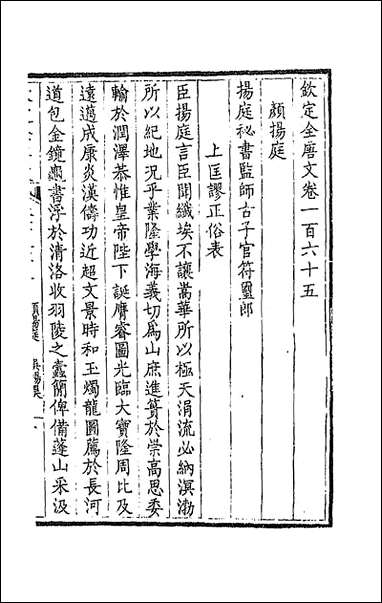 欽定全唐文卷一百六十五
顏揚庭
揚庭祕書監師古子官符璽郎
上匡謬正俗表
臣揚庭言臣聞纖埃不讓嵩華所以極天涓流必納溟渤
所以紀地況乎業隆學海義切為山庶進簣於崇高思委
輸於潤澤恭惟皇帝陛下誕膺睿圖光臨大寶隆周比及
遠邁成康炎漢儔功近超文景時和玉燭龍圖薦於長河
道包金鏡龜書浮於清洛收羽陵之蠹簡俾備蓬山采汲
顏揚庭